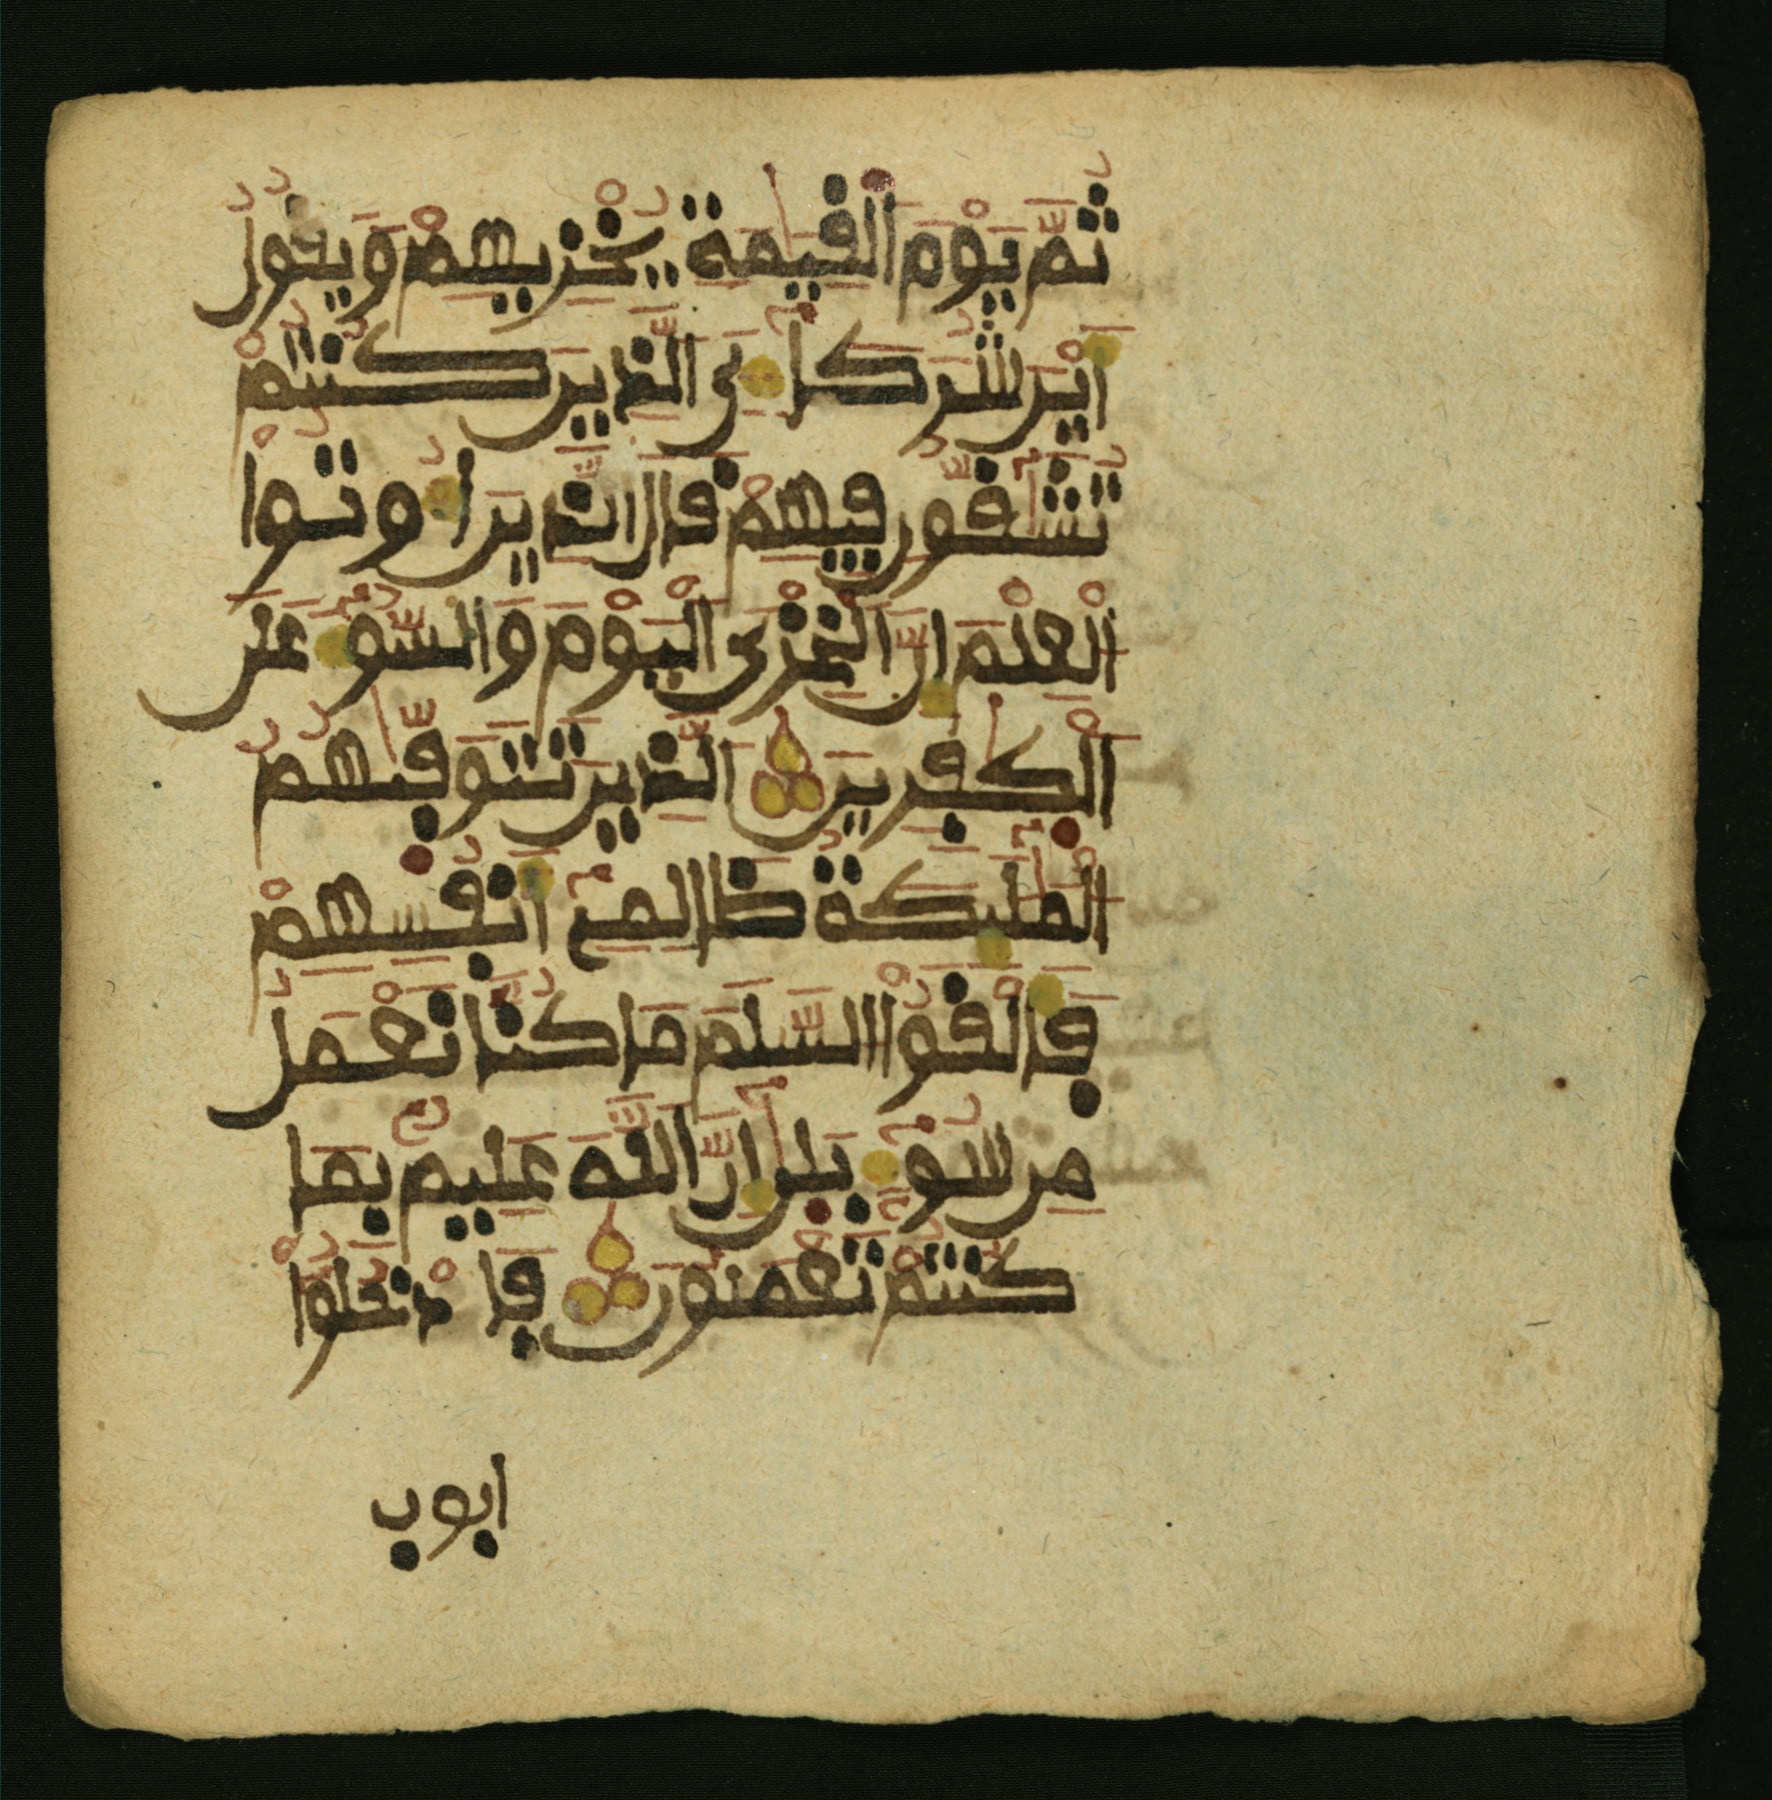 ثُمَّ يَوْمَ اَلْقِيَٰمَةِ يُخْزِيهِمْ وَيَقُولُ
أَيْنَ شُرَكَآءِىَ اَلَّذِينَ كُنتُمْ
تُشَٰٓقُّونَ فِيهِمْ قَالَ اَلَّذِينَ أُوتُواْ
اُلْعِلْمَ إِنَّ اَلْخِزْىَ اَلْيَوْمَ وَالسُّوٓءَ عَلَى
اَلْكَٰفِرِينَ اَلَّذِينَ تَتَوَفَّيٰهُمُ
اُلْمَلَٰٓئِكَةُ ظَالِمِىٓ أَنفُسِهِمْ
فَأَلْقَوُاْ اُلسَّلَمَ مَا كُنَّا نَعْمَلُ
مِن سُوٓءٍ بَلَىٰٓ إِنَّ اَللَّهَ عَلِيمٌ بِمَا
كُنتُمْ تَعْمَلُونَ فَادْخُلُوٓاْ
ابوب